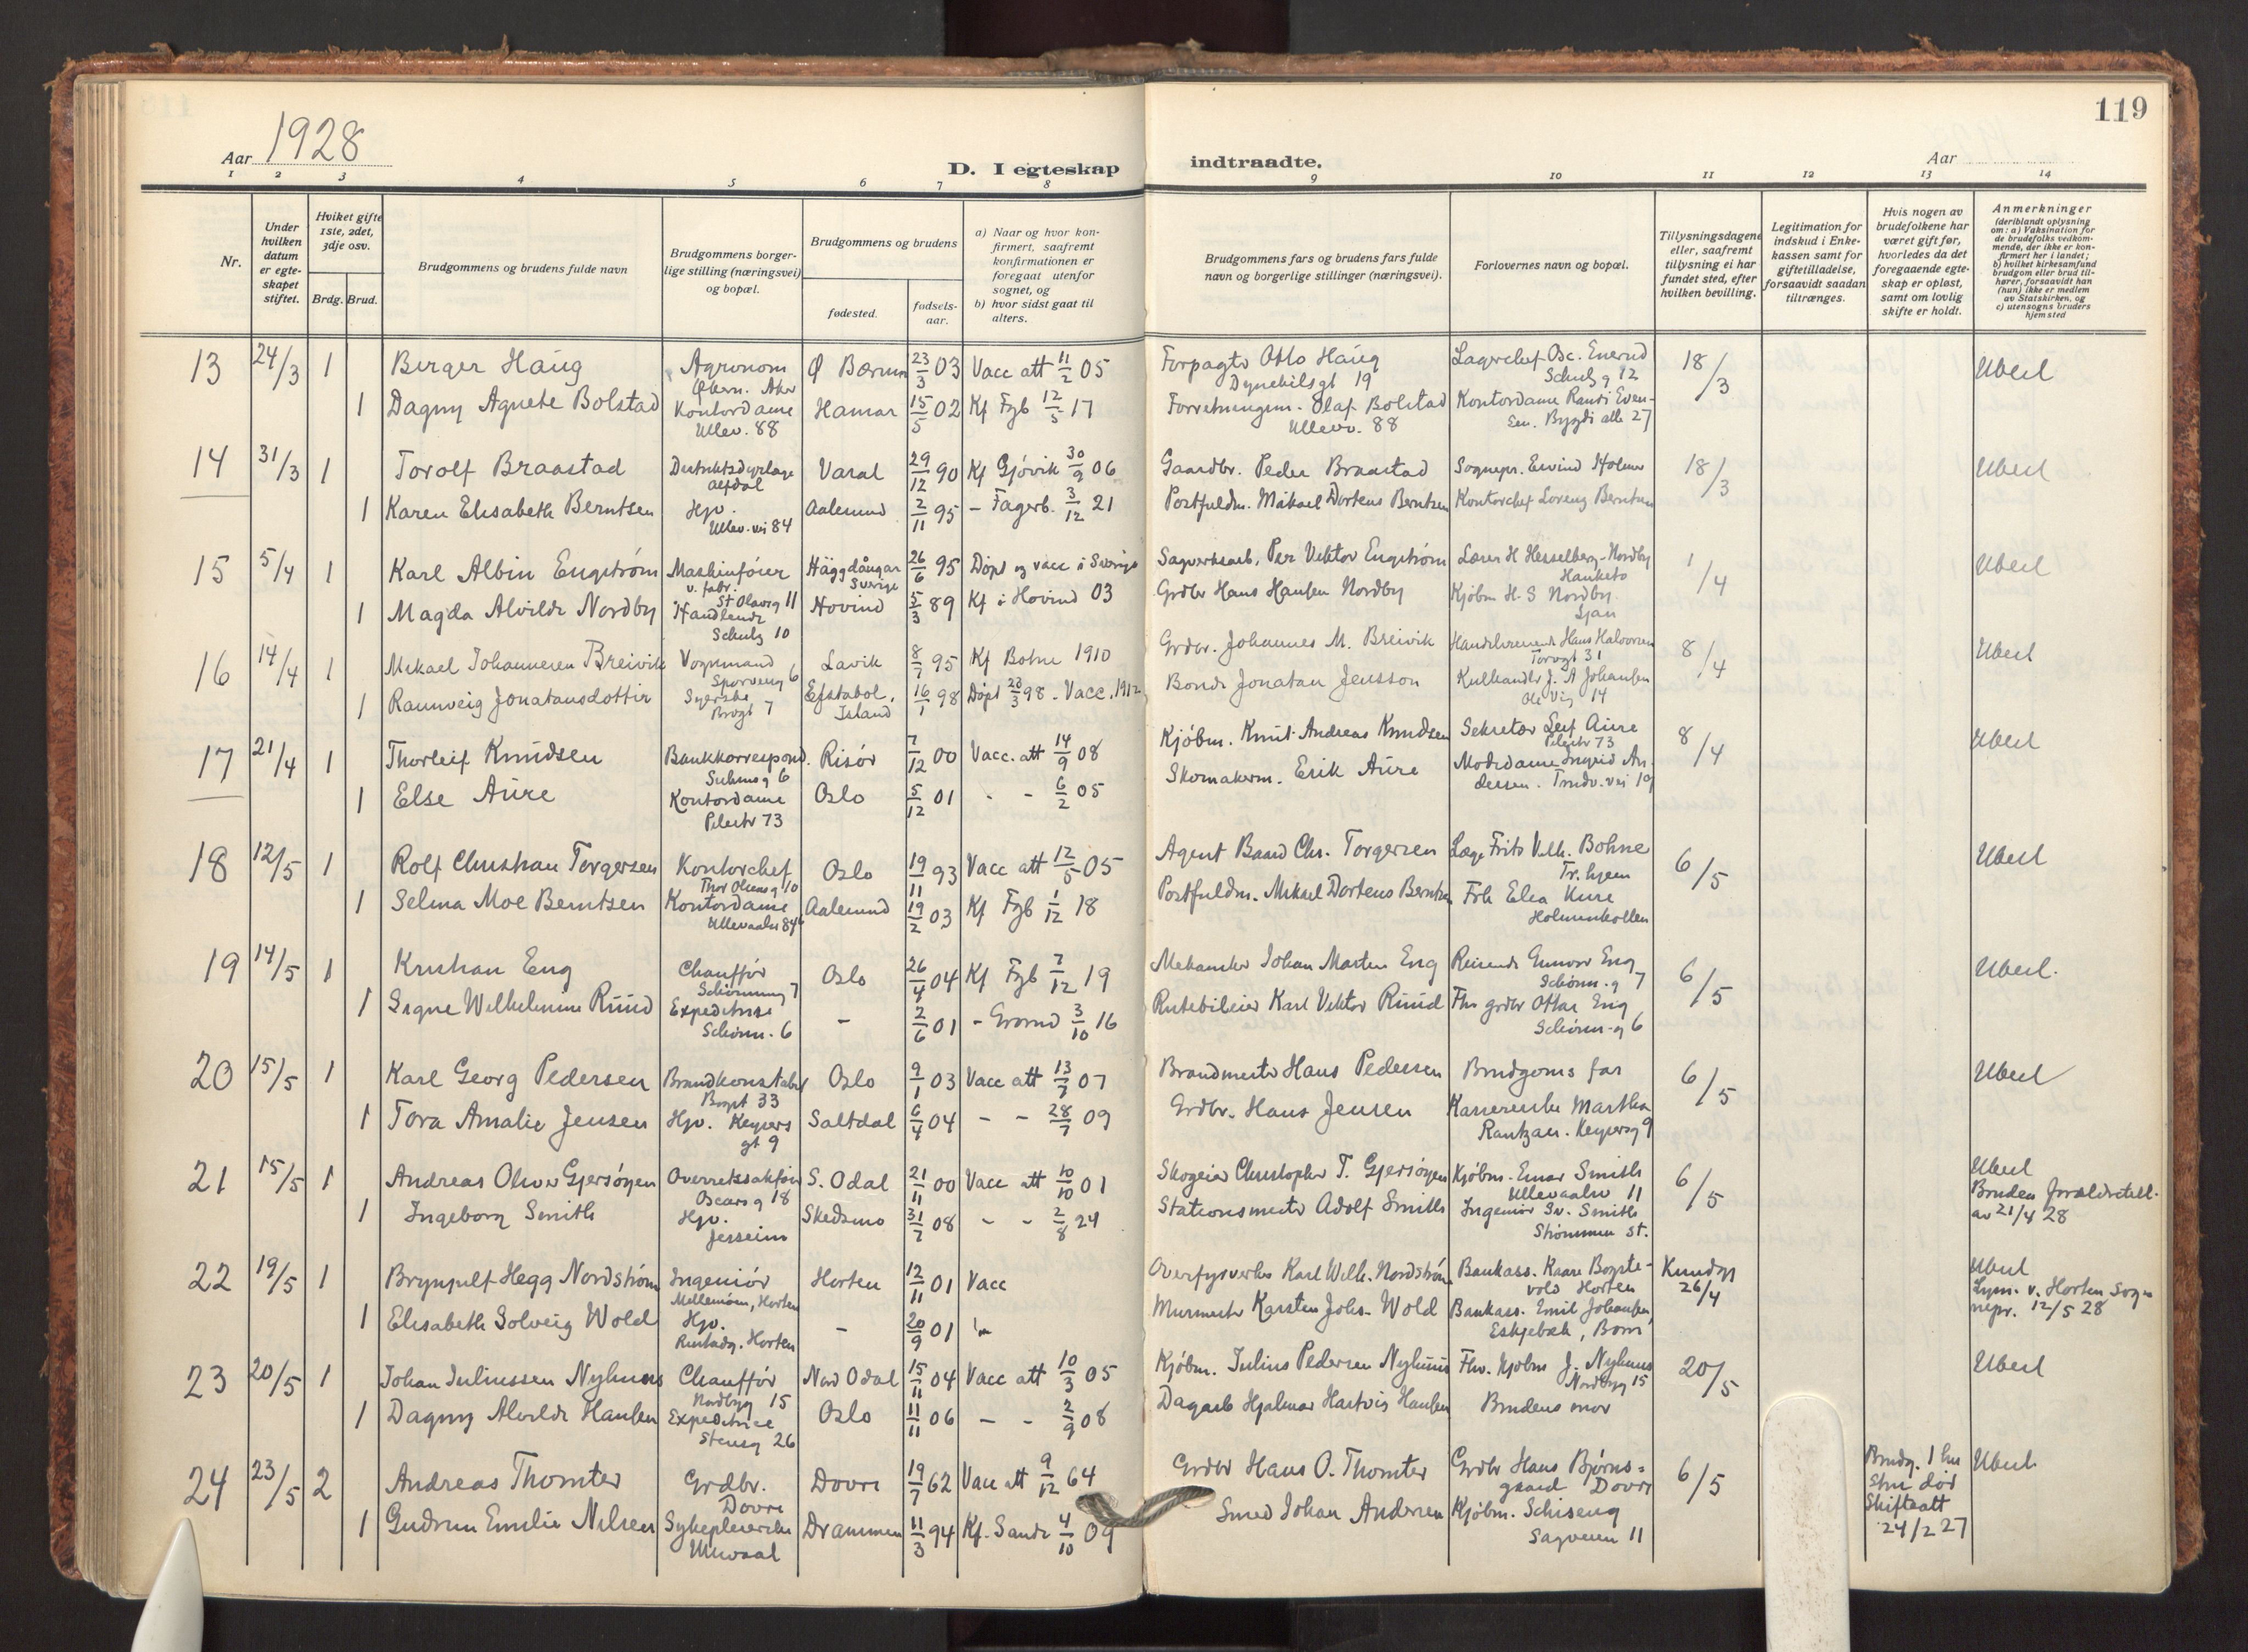 119
Aar 1928
D. I egteskap indtraadte.
Aar
1 2 3 4 5 6 7 8 9 10 11 12 13 14
Nr.
Under hvilken datum er egteskapet stiftet.
Hvilket gifte 1ste, 2det, 3dje osv.
Brdg. Brud.
Brudgommens og brudens fulde navn
Brudgommens borgerlige stilling (næringsvei) og bopæl.
Brudgommens og brudens
fødested.
fødselsaar.
a) Naar og hvor konfirmert, saafremt konfirmationen er foregaat utenfor sognet, og
b) hvor sidst gaat til alters.
Brudgommens fars og brudens fars fulde navn og borgerlige stillinger (næringsvei).
Forlovernes navn og bopæl.
Tillysningsdagene eller, saafremt tillysning ei har fundet sted, efter hvilken bevilling.
Legitimation for indskud i Enkekassen samt for giftetilladelse, forsaavidt saadan tiltrænges.
Hvis nogen av brudefolkene har været gift før, hvorledes da det foregaaende egteskap er opløst, samt om lovlig skifte er holdt.
Anmerkninger
(deriblandt oplysning om: a) Vaksination for de brudefolks vedkommende, der ikke er konfirmert her i landet; b) hvilket kirkesamfund brudgom eller brud tilhører, forsaavidt han (hun) ikke er medlem av Statskirken, og c) utensogns bruders hjemsted
13 24/3 1 Birger Haug Agronom Ø Bærum 23/3 03 Vacc att 11/2 05 Forpagter Otto Haug Lagerchef Osc. Enerud 18/3 Ubesl
Aker Dynekilsgt 19 Schulzg 12
1 Dagny Agnete Bolstad Kontordame Hamar 15/5 02 Kf Fgb 12/5 17 Forretningsm. Olaf Bolstad Kontordame Randi Even-
Ullev. 88 Ullevv. 88 sen. Bygdø alle 27
14 31/3 1 Torolf Braastad Distriktsdyrlæge Vardal 29/12 90 Kf Gjøvik 30/9 06 Gaardbr. Peder Braastad Sognepr. Eivind Holmer 18/3 Ubesl
Alfdal
1 Karen Elisabeth Berntsen Hjv. Aalesund 2/11 95 - Fagerb. 3/12 21 Postfuldm. Mikael Dorteus Berntsen Kontorchef Lorenz Berntsen
Ullev. vei 84
15 5/4 1 Karl Albin Engstrøm Maskinfører Häggdångar 26/6 95 Døpt og vacc i Sverige Sagverksarb. Per Viktor Engstrøm Lærer H Hesselberg-Nordby 1/4 Ubesl
v. fabr. St Olavsg 11 Sverige Hauketo
1 Magda Alvilde Nordby Handlende Hovind 5/3 89 Kf i Hovind 03 Grdbr Hans Hansen Nordby Kjøbm H. S Nordby.
Schulzg 10 Ljan
16 14/4 1 Mikael Johannesen Breivik Vognmand Lavik 8/7 95 Kf Bohne 1910 Grdbr. Johannes M. Breivik Hans Halvorsen 8/4 Ubesl
Sporveisg 6 Torvgt 31
1 Rannveig Jonatansdottir Syerske Efstabol, 16/1 98 Døpt 28/3 98 - Vacc. 1912 Bonde Jonatan Jensson Kulhandler J. A Johansen
Island Ole Vig 14
17 21/4 1 Thorleif Knudsen Bankkorrespond. Risør 7/12 00 Vacc. att 14/9 08 Kjøbm. Knut Andreas Knudsen Sekretær Leif Aure 8/4 Ubesl
Pilestr 73
1 Else Aure Kontordame Oslo 5/12 01 - - 6/2 05 Skomakerm. Erik Aure Modedame Ingrid An-
Pilestr 73 dersen. Trondv. vei 19
18 12/5 1 Rolf Christian Torgersen Kontorchef Oslo 19/11 93 Vacc att 12/5 05 Agent Baard Chr. Torgersen Læge Frits Vilh. Bohne 6/5 Ubesl
Thor Olsens g 10 Tr. hjem
1 Selma Moe Berntsen Kontordame Aalesund 19/2 03 Kf Fgb 1/12 18 Postfuldm. Mikael Dorteus Berntsen Frk Elea Kure
Ullevaalsv 84 Holmenkollen
19 14/5 1 Kristian Eng Chauffør Oslo 26/4 04 Kf Fgb 7/12 19 Mekaniker Johan Martin Eng Reisende Gunvor Eng 6/5 Ubesl.
Schønning 7 Schønn. g 7
1 Signe Wilhelmine Ruud Expeditrise - 2/6 01 - Grorud 3/10 16 Rutebileier Karl Viktor Ruud Fhv grdbr Ottar Eng
Schønn. 6 Schønn. g 6
20 15/5 1 Karl Georg Pedersen Brandkonstabel Oslo 9/1 03 Vacc att 13/7 07 Brandmester Hans Pedersen Brudgoms far 6/5 Ubesl
Bogst 33
1 Tora Amalie Jensen Hjv. Keysers Saltdal 6/4 04 - - 28/7 09 Grdbr. Hans Jensen Kassererske Martha
gt 9 Rantzau. Keysersg 9
21 15/5 1 Andreas Oliver Gjersøyen Overretssakfører S. Odal 21/11 00 Vacc att 10/10 01 Skogeier Christopher T. Gjersøyen Kjøbm. Einar Smith 6/5 Ubesl
Oscarsg 18 Ullevaalsv 11 Bruden forældretill.
1 Ingeborg Smith Hjv. Skedsmo 31/7 08 - - 2/8 24 Stationsmester Adolf Smith Ingeniør Sv. Smith av 21/4 28
Jesseim Strømmen st.
22 19/5 1 Brynjulf Hegg Nordstrøm Ingeniør Horten 12/11 01 Vacc Overfyrverker Karl Wilh. Nordstrøm Bankass. Kaare Borgte- Kundgj Ubesl
Mellemøen, Horten vold Horten 26/4 Lysn. v. Horten sogn
1 Elisabeth Solveig Wold Hjv. - 20/9 01 Murmester Karsten Johs. Wold Bankass. Emil Johansen nepr. 12/5 28
Horten Eskjebæk, Borre
23 20/5 1 Johan Juliussen Nyhuus Chauffør Nord Odal 15/11 04 Vacc att 10/3 05 Kjøbm. Julius Pedersen Nyhuus Fhv. kjøbm J. Nyhuus 20/5 Ubesl
Nordbyg 15 Nordbyg 15
1 Dagny Alvilde Hansen Expeditrice Oslo 11/11 06 - - 2/9 08 Dagarb Hjalmar Hartvig Hansen Brudens mor
Stensg 26
24 23/5 2 Andreas Thomter Grdbr. Dovre 19/7 62 Vacc att 9/12 64 Grdbr Hans O. Thomter Grdbr Hans Bjørns- 6/5 Brudg. 1 hu Ubesl.
Dovre gaard Dovre stru død
1 Gudrun Emilie Nilsen Sykepleierske Drammen 11/3 94 Kf. Sande 4/10 09 Smed Johan Andersen Kjøbm. Schiseng Skifteatt
Ullevaal Sagveien 11 24/2 27